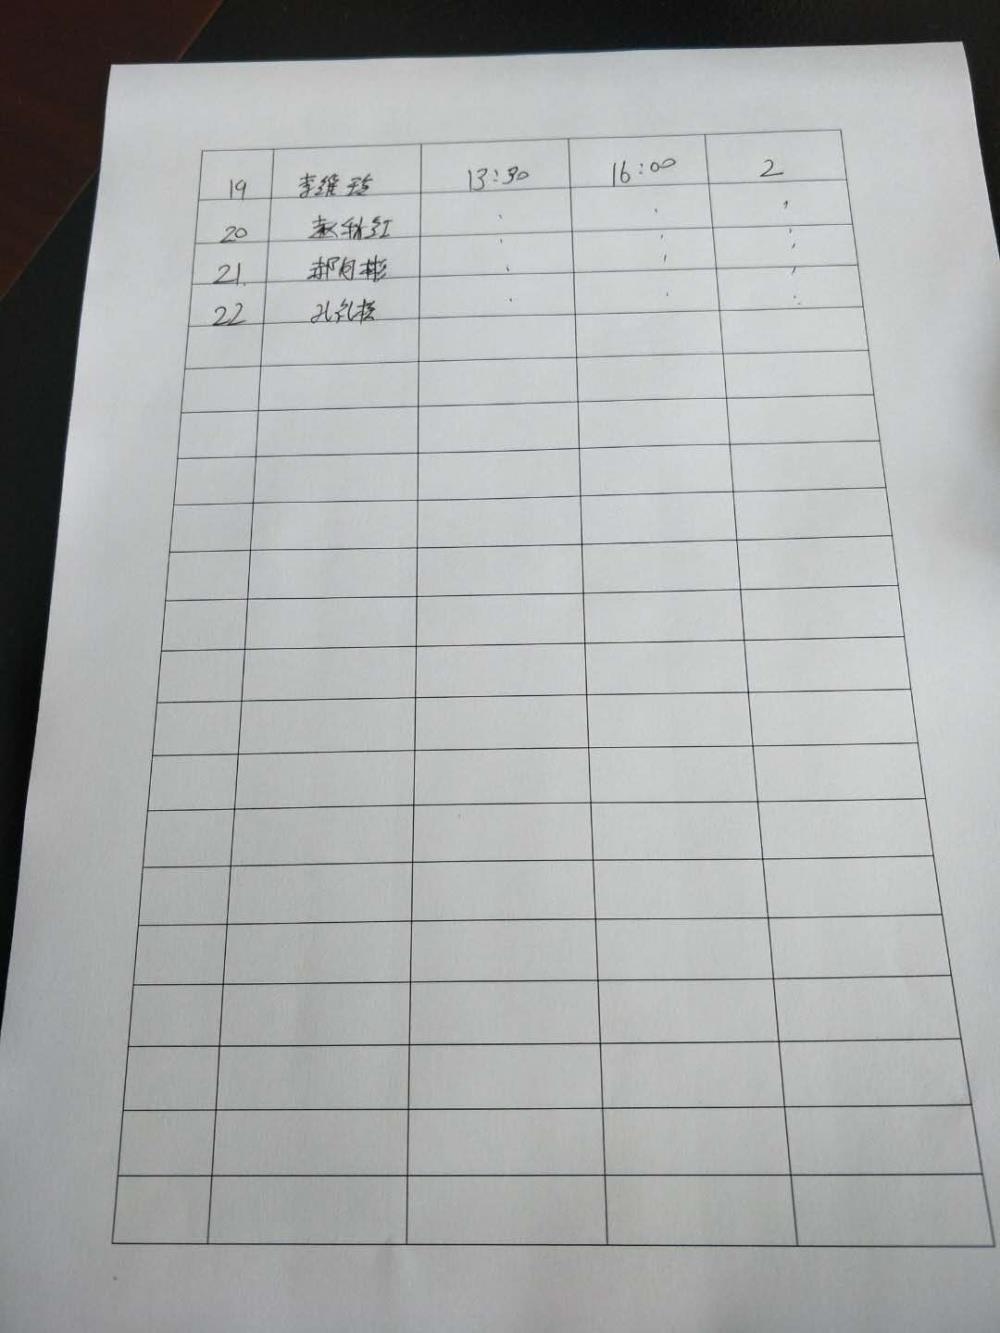 19 李维玲 13:30 16:00 2
20 赵秋红
21 郝月彬
22 孔